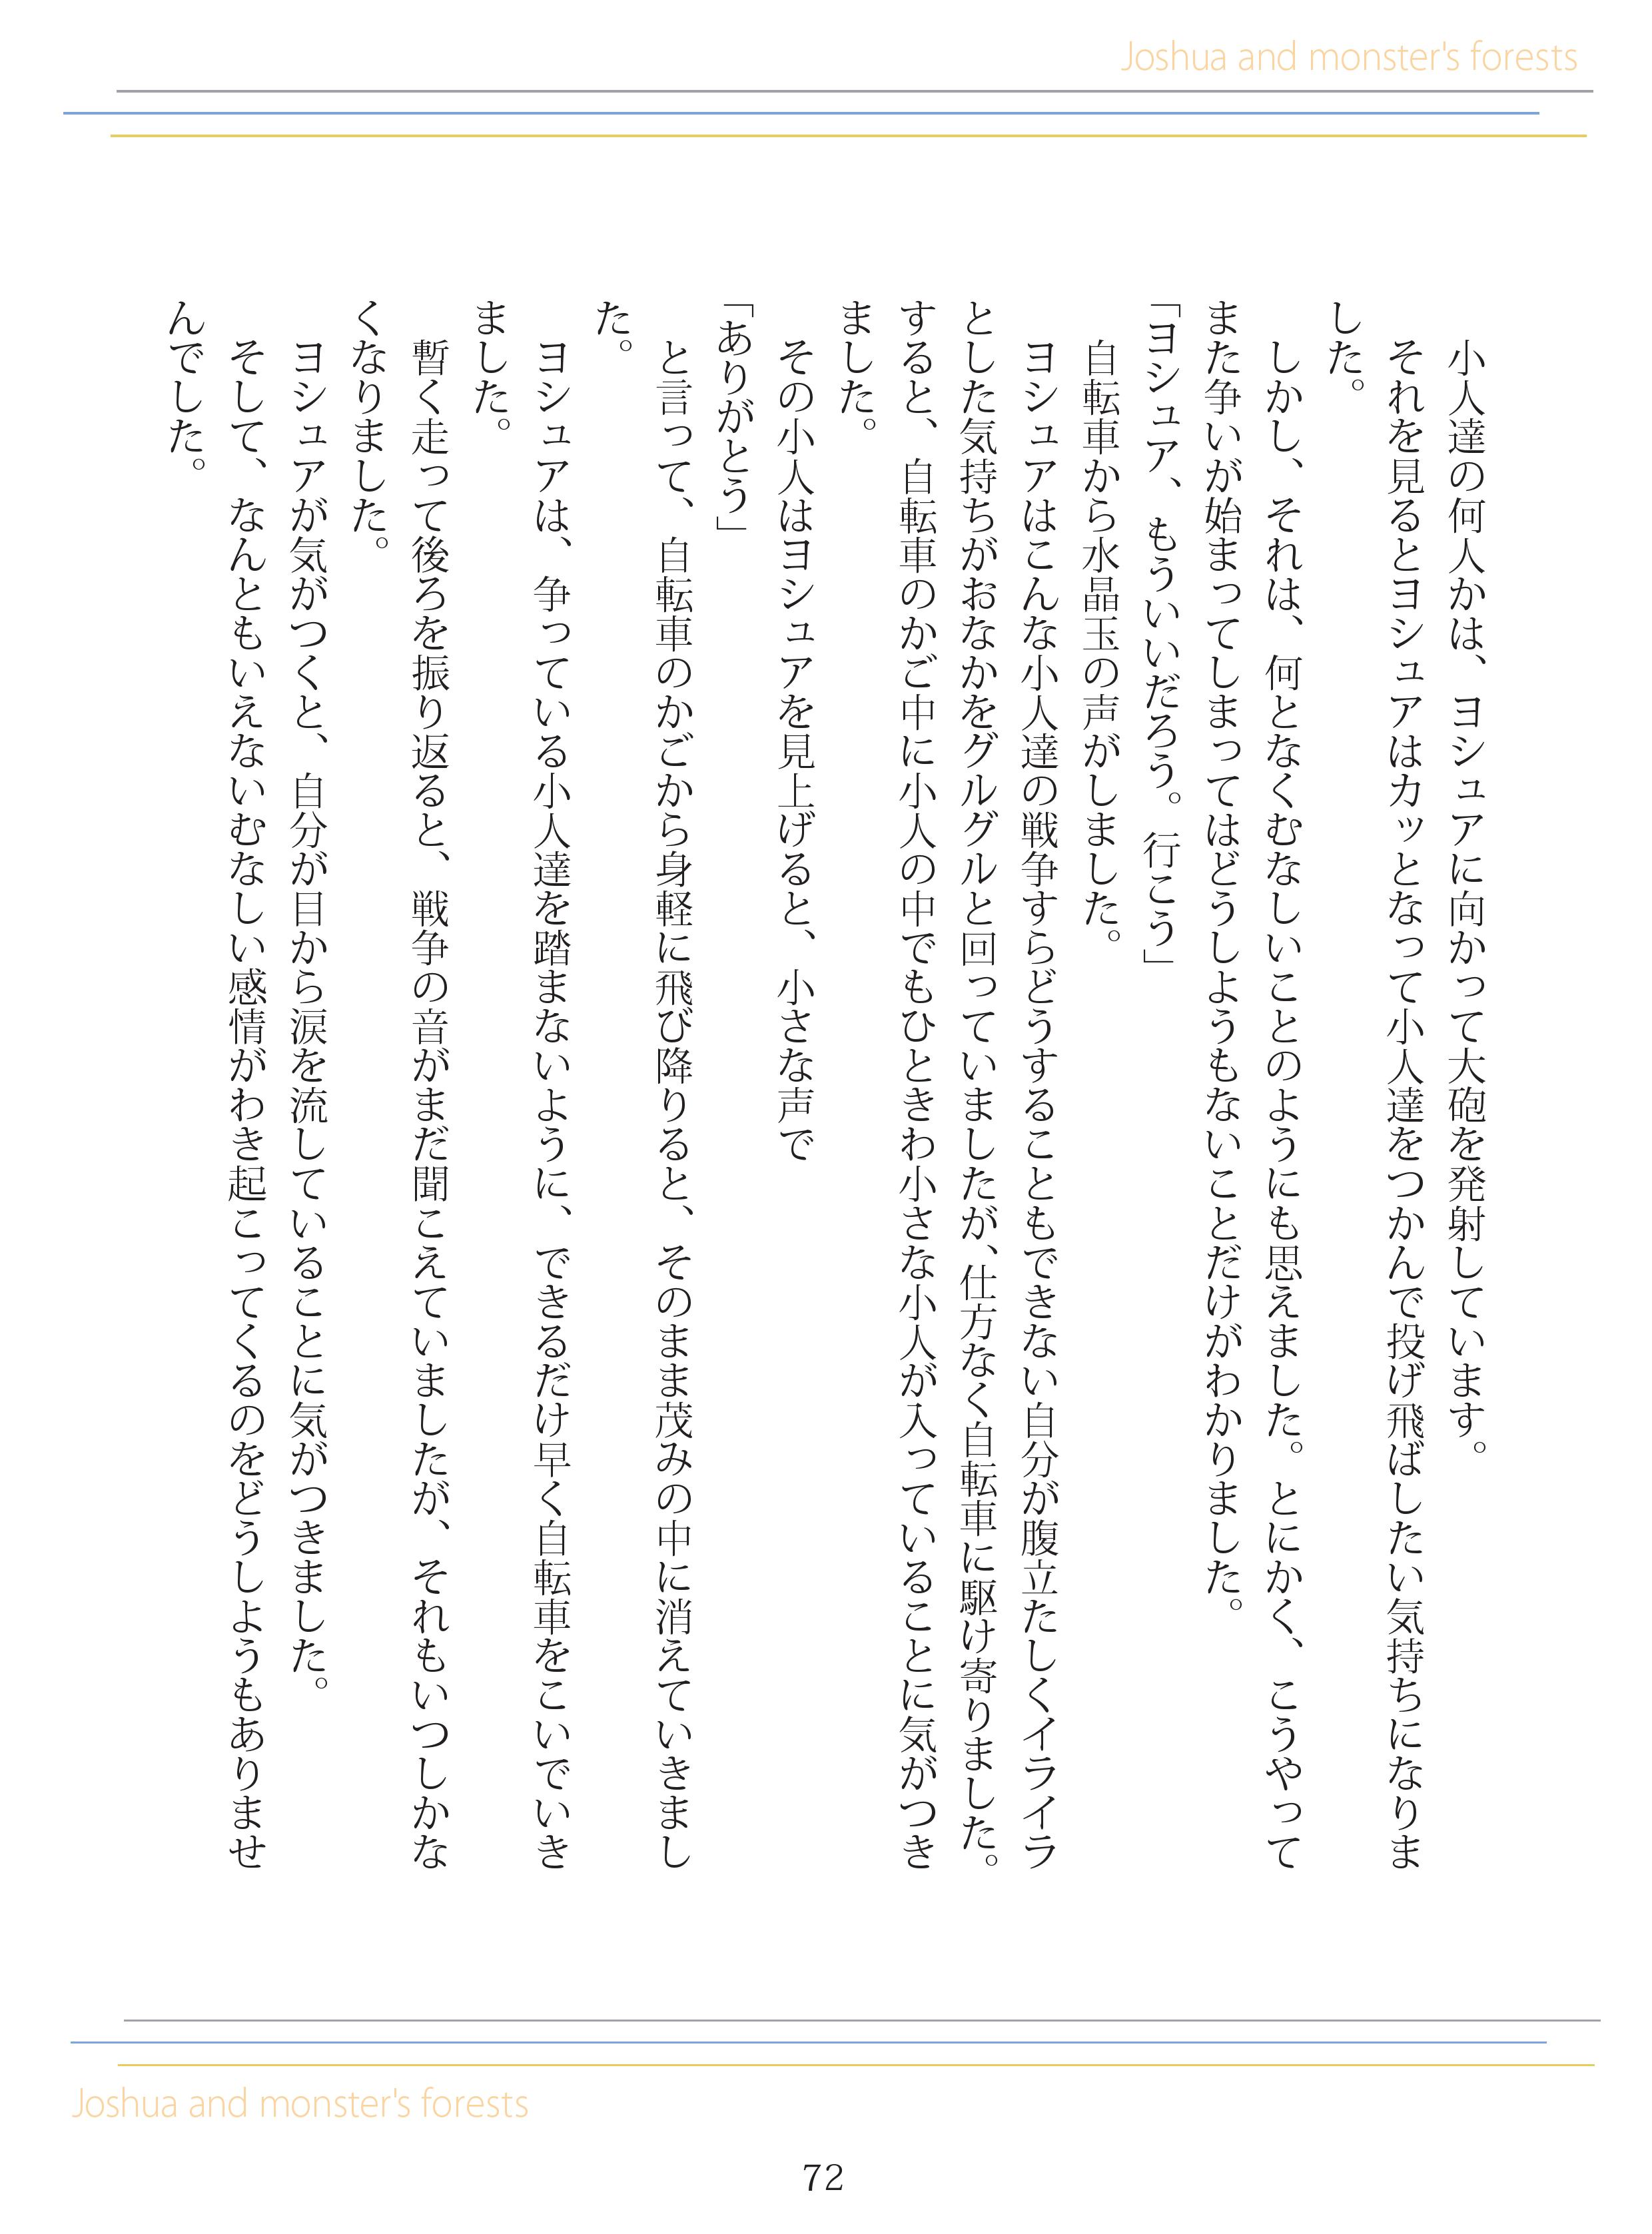 Joshua and monster's forests
　小人達の何人かは、ヨシュアに向かって大砲を発射しています。
　それを見るとヨシュアはカッとなって小人達をつかんで投げ飛ばしたい気持ちになりま
した。
　しかし、それは、何となくむなしいことのようにも思えました。とにかく、こうやって
また争いが始まってしまってはどうしようもないことだけがわかりました。
「ヨシュア、もういいだろう。行こう」
　自転車から水晶玉の声がしました。
　ヨシュアはこんな小人達の戦争すらどうすることもできない自分が腹立たしくイライラ
とした気持ちがおなかをグルグルと回っていましたが、仕方なく自転車に駆け寄りました。
すると、自転車のかご中に小人の中でもひときわ小さな小人が入っていることに気がつき
ました。
　その小人はヨシュアを見上げると、小さな声で
「ありがとう」
　と言って、自転車のかごから身軽に飛び降りると、そのまま茂みの中に消えていきまし
た。
　ヨシュアは、争っている小人達を踏まないように、できるだけ早く自転車をこいでいき
ました。
　暫く走って後ろを振り返ると、戦争の音がまだ聞こえていましたが、それもいつしかな
くなりました。
　ヨシュアが気がつくと、自分が目から涙を流していることに気がつきました。
　そして、なんともいえないむなしい感情がわき起こってくるのをどうしようもありませ
んでした。
Joshua and monster's forests
72